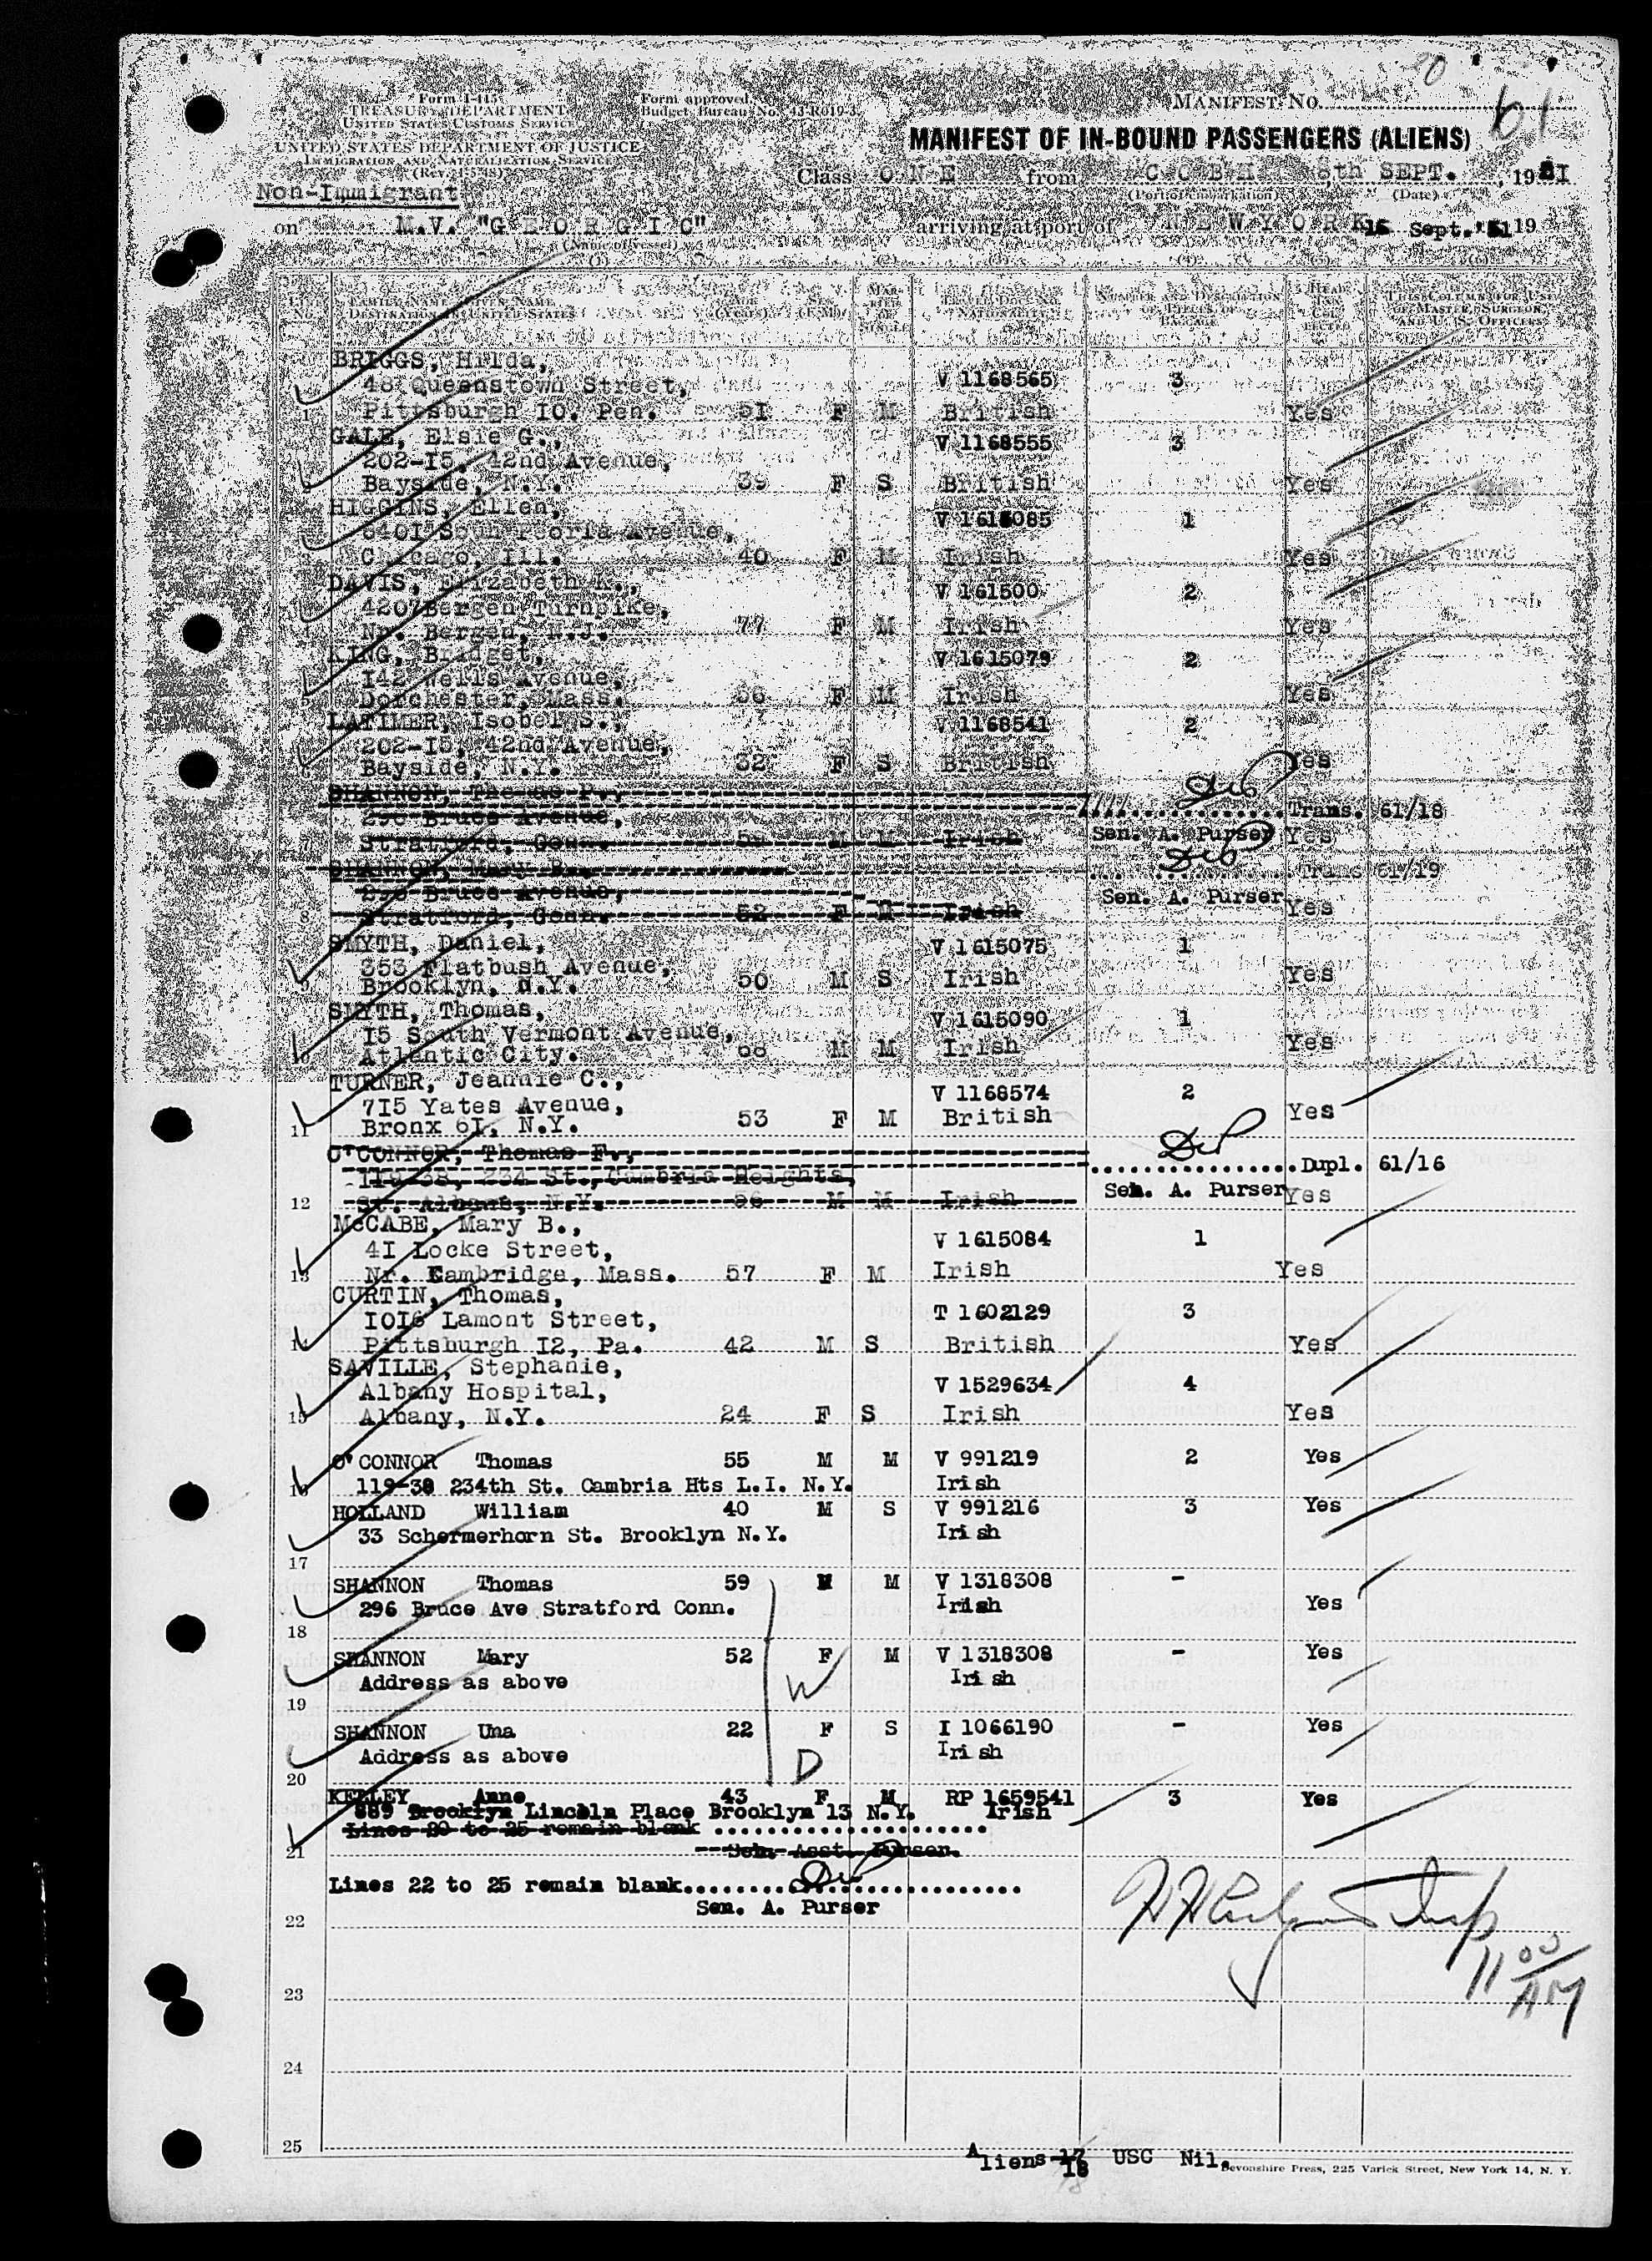 20
Form I-415
TREASURY DEPARTMENT
UNITED STATES CUSTOMS SERVICE
UNITED STATES DEPARTMENT OF JUSTICE
IMMIGRATION AND NATURALIZATION SERVICE
Form approved.
Budget Bureau No. 43-R019-3.
MANIFEST NO. 61
MANIFEST OF IN-BOUND PASSENGERS (ALIENS)
Non-Immigrant
Class ONE from COBH, 8th SEPT., 1951
(Port of embarkation) (Date)
on M.V. "GEORGIC" arriving at port of NEW YORK 16 Sept. '51 19
(Name of vessel)
(1) (2) (3) (4) (5) (6)
LINE No. FAMILY NAME—GIVEN NAME DESTINATION IN UNITED STATES AGE (YEARS) SEX (F-M) MARRIED OR SINGLE TRAVEL DOC. NO. NATIONALITY NUMBER AND DESCRIPTION OF PIECES OF BAGGAGE HEAD TAX COLLECTED THIS COLUMN FOR USE OF MASTER, SURGEON, AND U. S. OFFICERS
BRIGGS, Hilda,
48 Queenstown Street, V 1168565 3
1 Pittsburgh I0. Pen. 5I F M British Yes
GALE, Elsie G., V 1168555 3
202-I5, 42nd Avenue,
2 Bayside, N.Y. 39 F S British Yes
HIGGINS, Ellen, V 1615085 1
640I South Peoria Avenue,
Chicago, Ill. 40 F M Irish Yes
DAVIS, Elizabeth K., V 161500 2
4207 Bergen Turnpike,
Nr. Bergen, N.J. 77 F M Irish Yes
KING, Bridget, V 1615079 2
I42 Wells Avenue,
5 Dorchester, Mass. F M Irish Yes
LATIMER, Isobel S., V 1168541 2
202-I5, 42nd Avenue,
6 Bayside, N.Y. 32 F S British Yes
SHANNON, Thomas P.,
296 Bruce Avenue, Trans. 61/18
7 Stratford, Conn. 59 M M Irish Sen. A. Purser Yes
SHANNON, Mary B., Trans 61/19
296 Bruce Avenue,
8 Stratford, Conn. 52 F M Irish Sen. A. Purser Yes
SMYTH, Daniel, V 1615075 1
353 Flatbush Avenue,
9 Brooklyn, N.Y. 50 M S Irish Yes
SMYTH, Thomas, V 1615090 1
I5 South Vermont Avenue,
10 Atlantic City. 68 M M Irish Yes
TURNER, Jeannie C., V 1168574 2
7I5 Yates Avenue,
11 Bronx 6I, N.Y. 53 F M British Yes
O'CONNOR, Thomas F.,
119-38, 234 St., Cambria Heights, Dupl. 61/16
12 St. Albans, N.Y. 56 M M Irish Sen. A. Purser Yes
McCABE, Mary B.,
4I Locke Street, V 1615084 1
13 Nr. Cambridge, Mass. 57 F M Irish Yes
CURTIN, Thomas, T 1602129 3
I0I6 Lamont Street,
14 Pittsburgh I2, Pa. 42 M S British Yes
SAVILLE, Stephanie,
Albany Hospital, V 1529634 4
15 Albany, N.Y. 24 F S Irish Yes
O'CONNOR Thomas 55 M M V 991219 2 Yes
16 119-38 234th St. Cambria Hts L.I. N.Y. Irish
HOLLAND William 40 M S V 991216 3 Yes
33 Schermerhorn St. Brooklyn N.Y. Irish
17
SHANNON Thomas 59 M M V 1318308 -
296 Bruce Ave Stratford Conn. Irish Yes
18
SHANNON Mary 52 F M V 1318308 - Yes
Address as above W Irish
19
SHANNON Una 22 F S I 1066190 - Yes
Address as above D Irish
20
KELLEY Anne 43 F M RP 1659541 3 Yes
889 Brooklyn Lincoln Place Brooklyn 13 N.Y. Irish
Lines 20 to 25 remain blank
21 Sen. Asst. Purser.
Lines 22 to 25 remain blank
Sen. A. Purser
22
Insp
11 00 AM
23
24
25
Aliens 17 18 USC Nil.
18
Devonshire Press, 225 Varick Street, New York 14, N. Y.